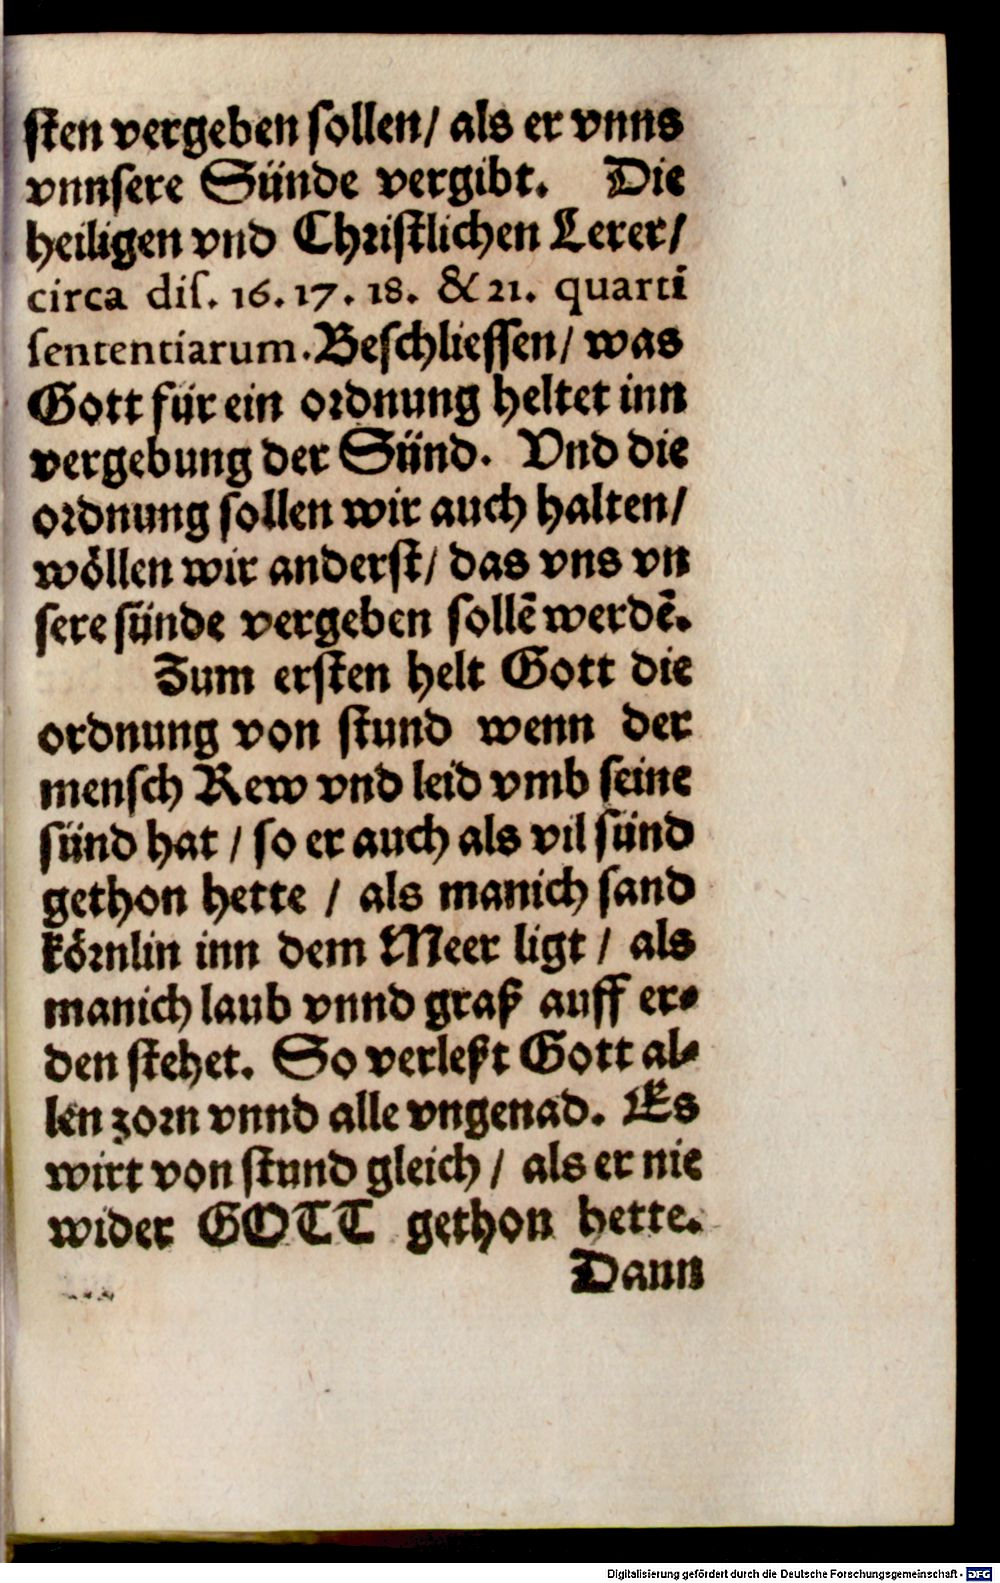 ſten vergeben ſollen/ als er vnns
vnnſere Sünde vergibt. Die
heiligen vnd Chriſtlichen Lerer/
circa diſ. 16. 17. 18. & 21. quarti
ſententiarum. Beſchlieſſen/ was
Gott für ein ordnung heltet inn
vergebung der Sünd. Vnd die
ordnung ſollen wir auch halten/
wöllen wir anderſt/ das vns vn
ſere ſünde vergeben ſollē werdē.
Zum erſten helt Gott die
ordnung von ſtund wenn der
menſch Rew vnd leid vmb ſeine
ſünd hat / ſo er auch als vil ſünd
gethon hette / als manich ſand
körnlin inn dem Meer ligt / als
manich laub vnnd graß auff er⸗
den ſtehet. So verleßt Gott al⸗
len zorn vnnd alle vngenad. Es
wirt von ſtund gleich / als er nie
wider GOTT gethon hette.
Dann
Digitalisierung gefördert durch die Deutsche Forschungsgemeinschaft - DFG